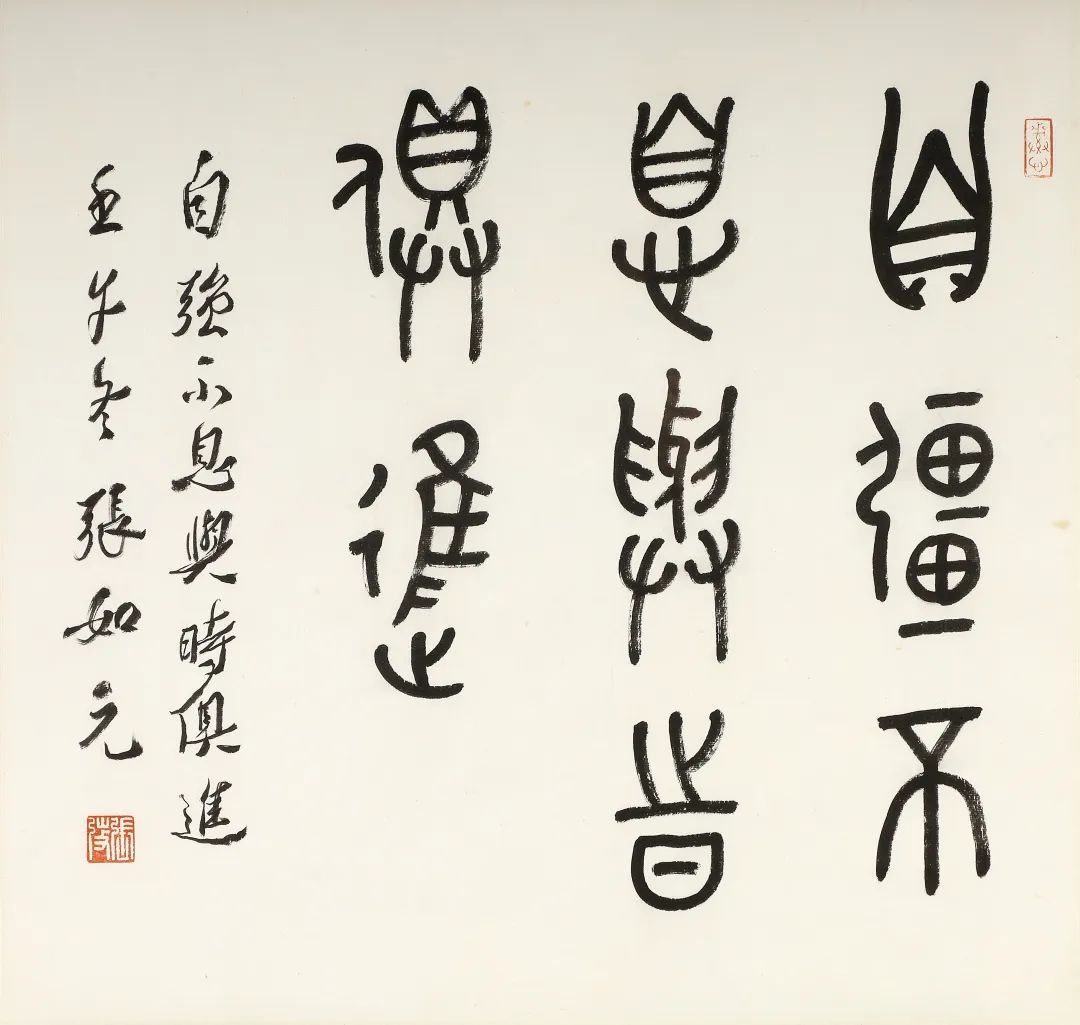 自彊不
息與時
俱進
自強不息與時俱進
壬午冬張如元